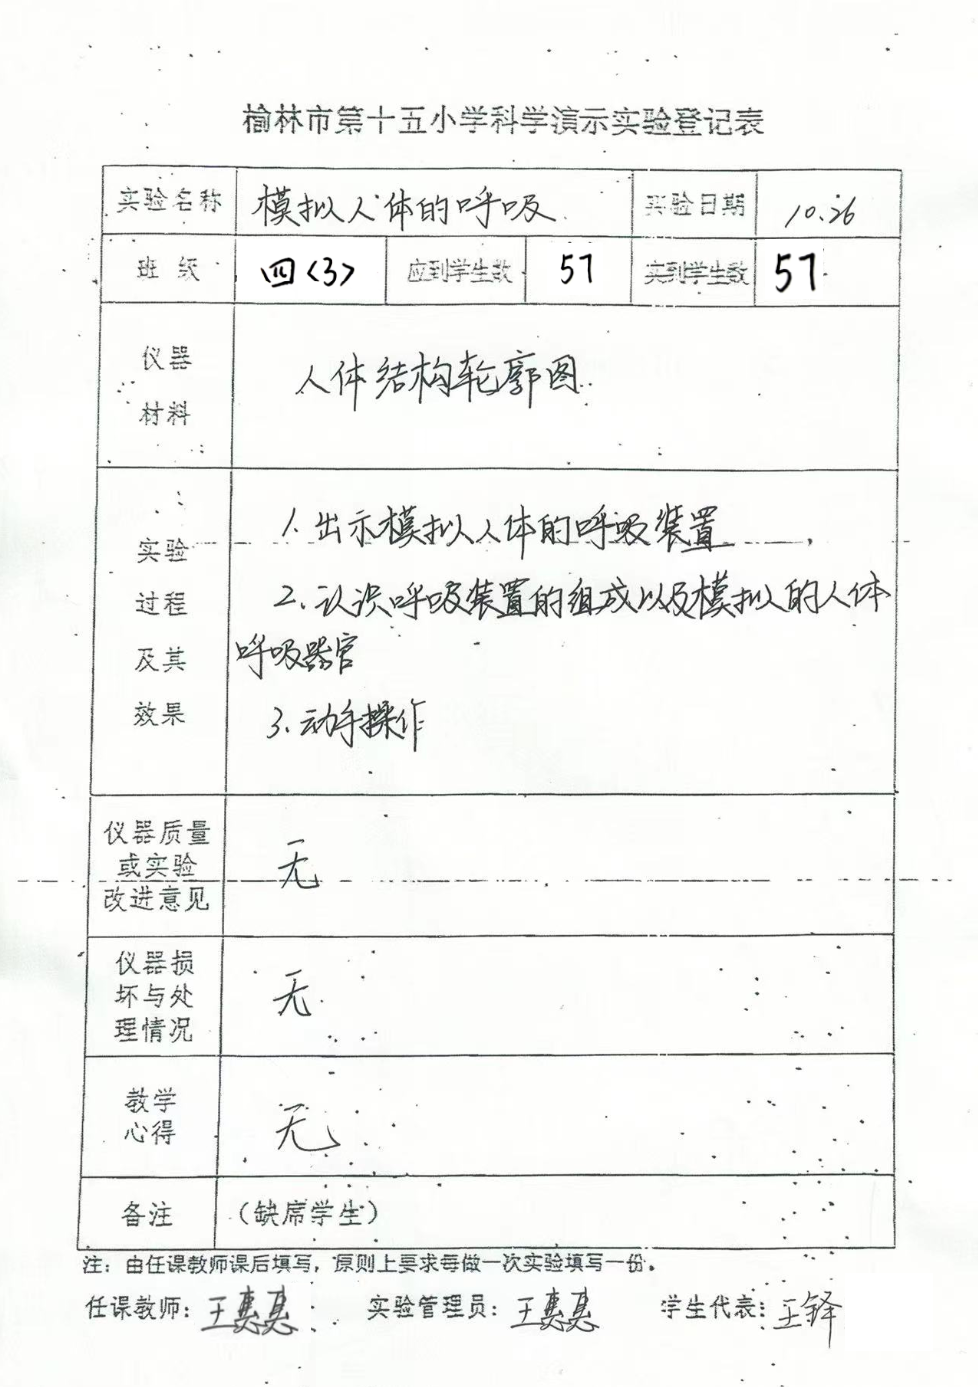 榆林市第十五小学科学演示实验登记表
实验名称 模拟人体的呼吸 实验日期 10.26
班 级 四〈3〉 应到学生数 57 实到学生数 57
仪器
材料
人体结构轮廓图
实验
过程
及其
效果
1.出示模拟人体的呼吸装置
2.认识呼吸装置的组成以及模拟的人体
呼吸器官
3.动手操作
仪器质量
或实验
改进意见
无
仪器损
坏与处
理情况
无
教学
心得
无
备注 （缺席学生）
注：由任课教师课后填写，原则上要求每做一次实验填写一份。
任课教师：王惠惠 实验管理员：王惠惠 学生代表：王铎